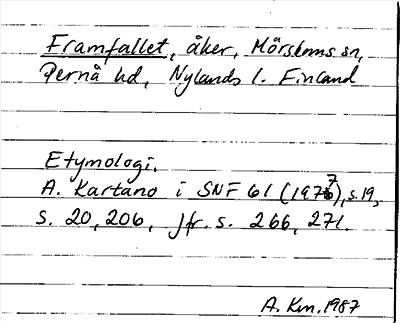 Framfallet, åker, Mörskoms sn,
Pernå hd, Nylands l. Finland
Etymologi.
A. Kartano i SNF 61 (1977), s. 19,
s. 20, 206, jfr. s. 266, 271.
A. Km. 1987